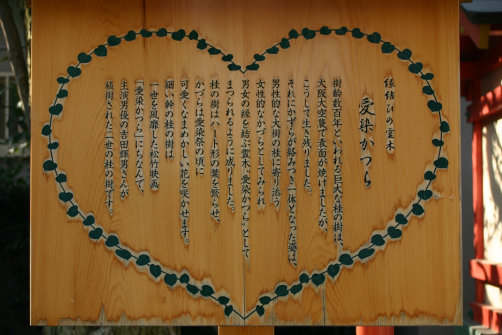 縁結びの霊木
愛染かつら
樹齢数百年といわれる巨大な桂の樹は、
大阪大空襲で表面が焼けましたが、
こうして生き残りました。
それにかずらが絡みつき一体となった姿は、
男性的な大樹の桂に寄り添う
女性的なかづらとしてみられ
男女の縁を結ぶ霊木“愛染かつら”として
まつられるように成りました。
桂の樹は、ハート形の葉を繁らせ、
かづらは愛染祭の頃に
可愛くなまめかしい花を咲かせます。
細い幹の桂の樹は
一世を風靡した松竹映画
「愛染かつら」にちなんで、
主演男優の吉田輝男さんが
植樹された二世の桂の樹です。